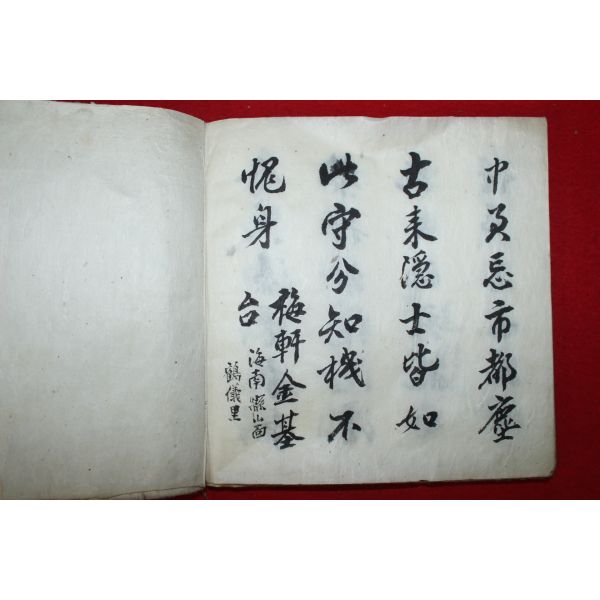 中可忘市都塵
古来隠士皆如
此守分知機不
愧身
梅軒金基
台
海南縣山面
鶴儀里